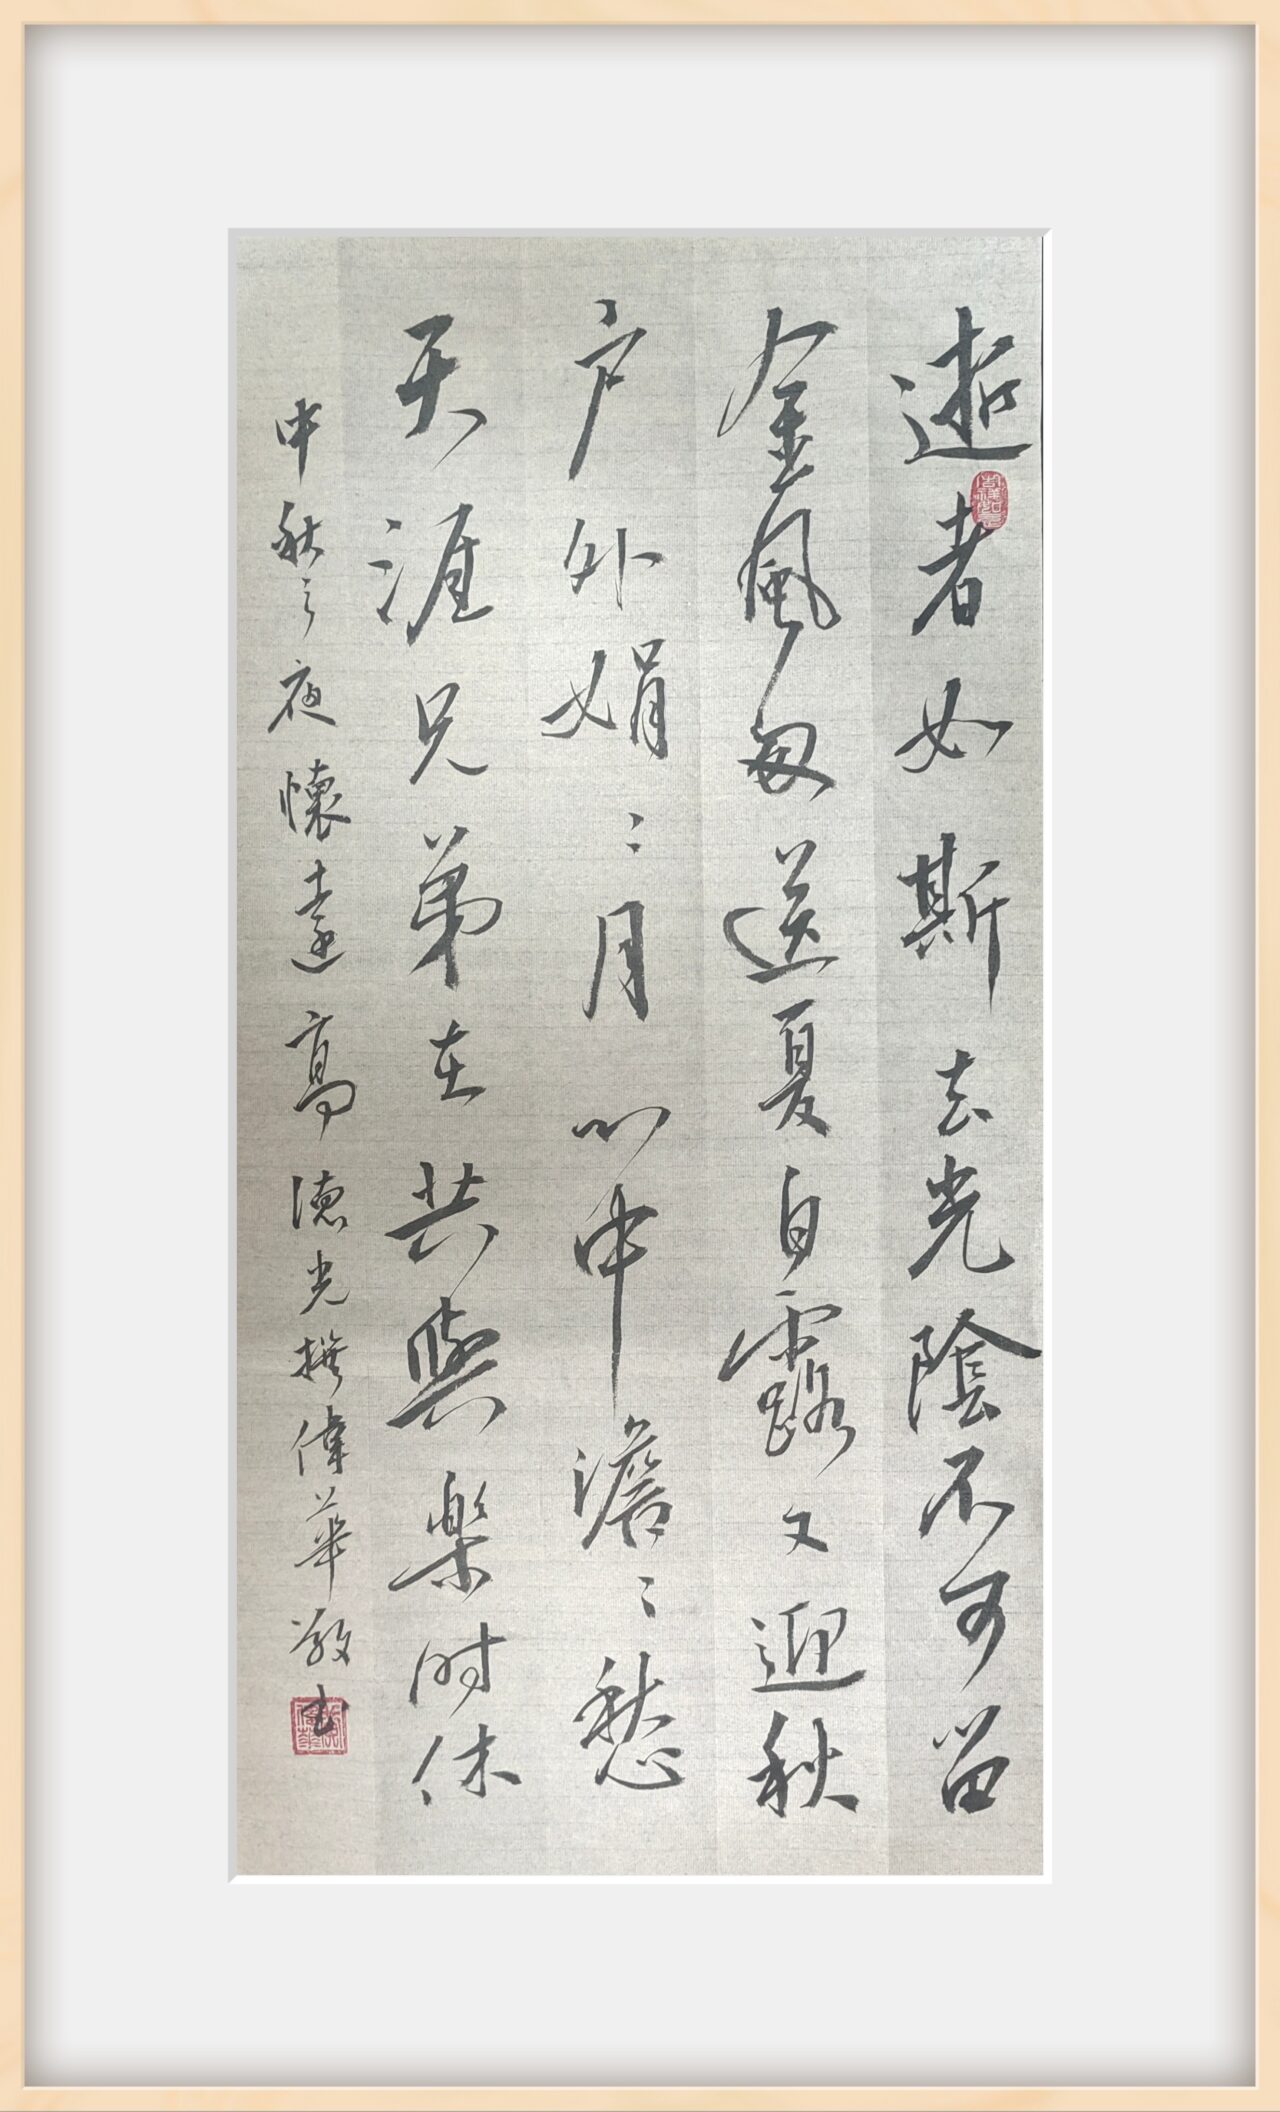 逝者如斯去光陰不可留
金風匆送夏白露又迎秋
户外娟〻月心中澹〻愁
天涯兄弟在共與樂時休
中秋之夜懷遠高德光撰偉華敬書